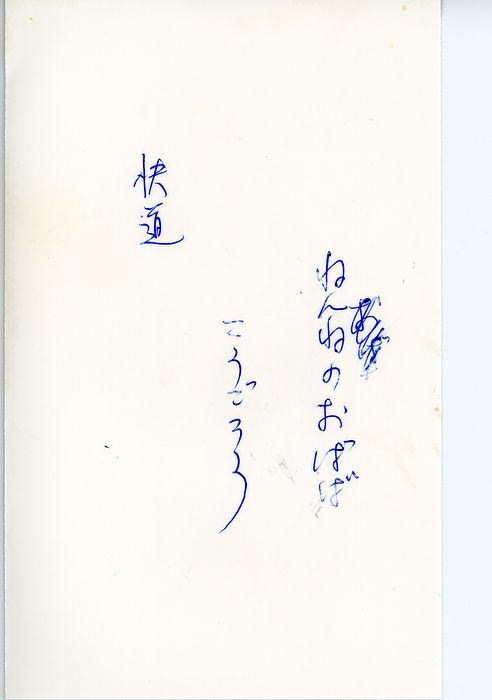 ねんねのおばば
こうごろう
快道